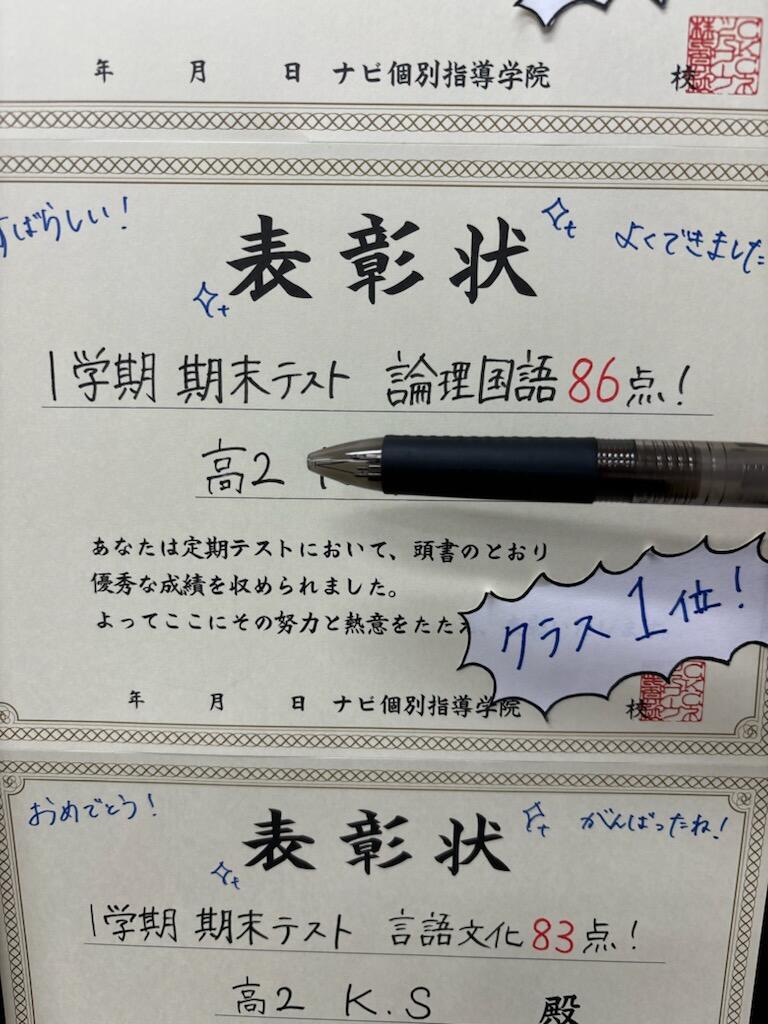 年 月 日 ナビ個別指導学院 校
すばらしい!
表彰状
よくできました
1学期 期末テスト 論理国語 86点!
高2
あなたは定期テストにおいて、頭書のとおり
優秀な成績を収められました。
よってここにその努力と熱意をたた
クラス1位!
年 月 日 ナビ個別指導学院 校
おめでとう!
表彰状
がんばったね!
1学期 期末テスト 言語文化 83点!
高2 K.S 殿